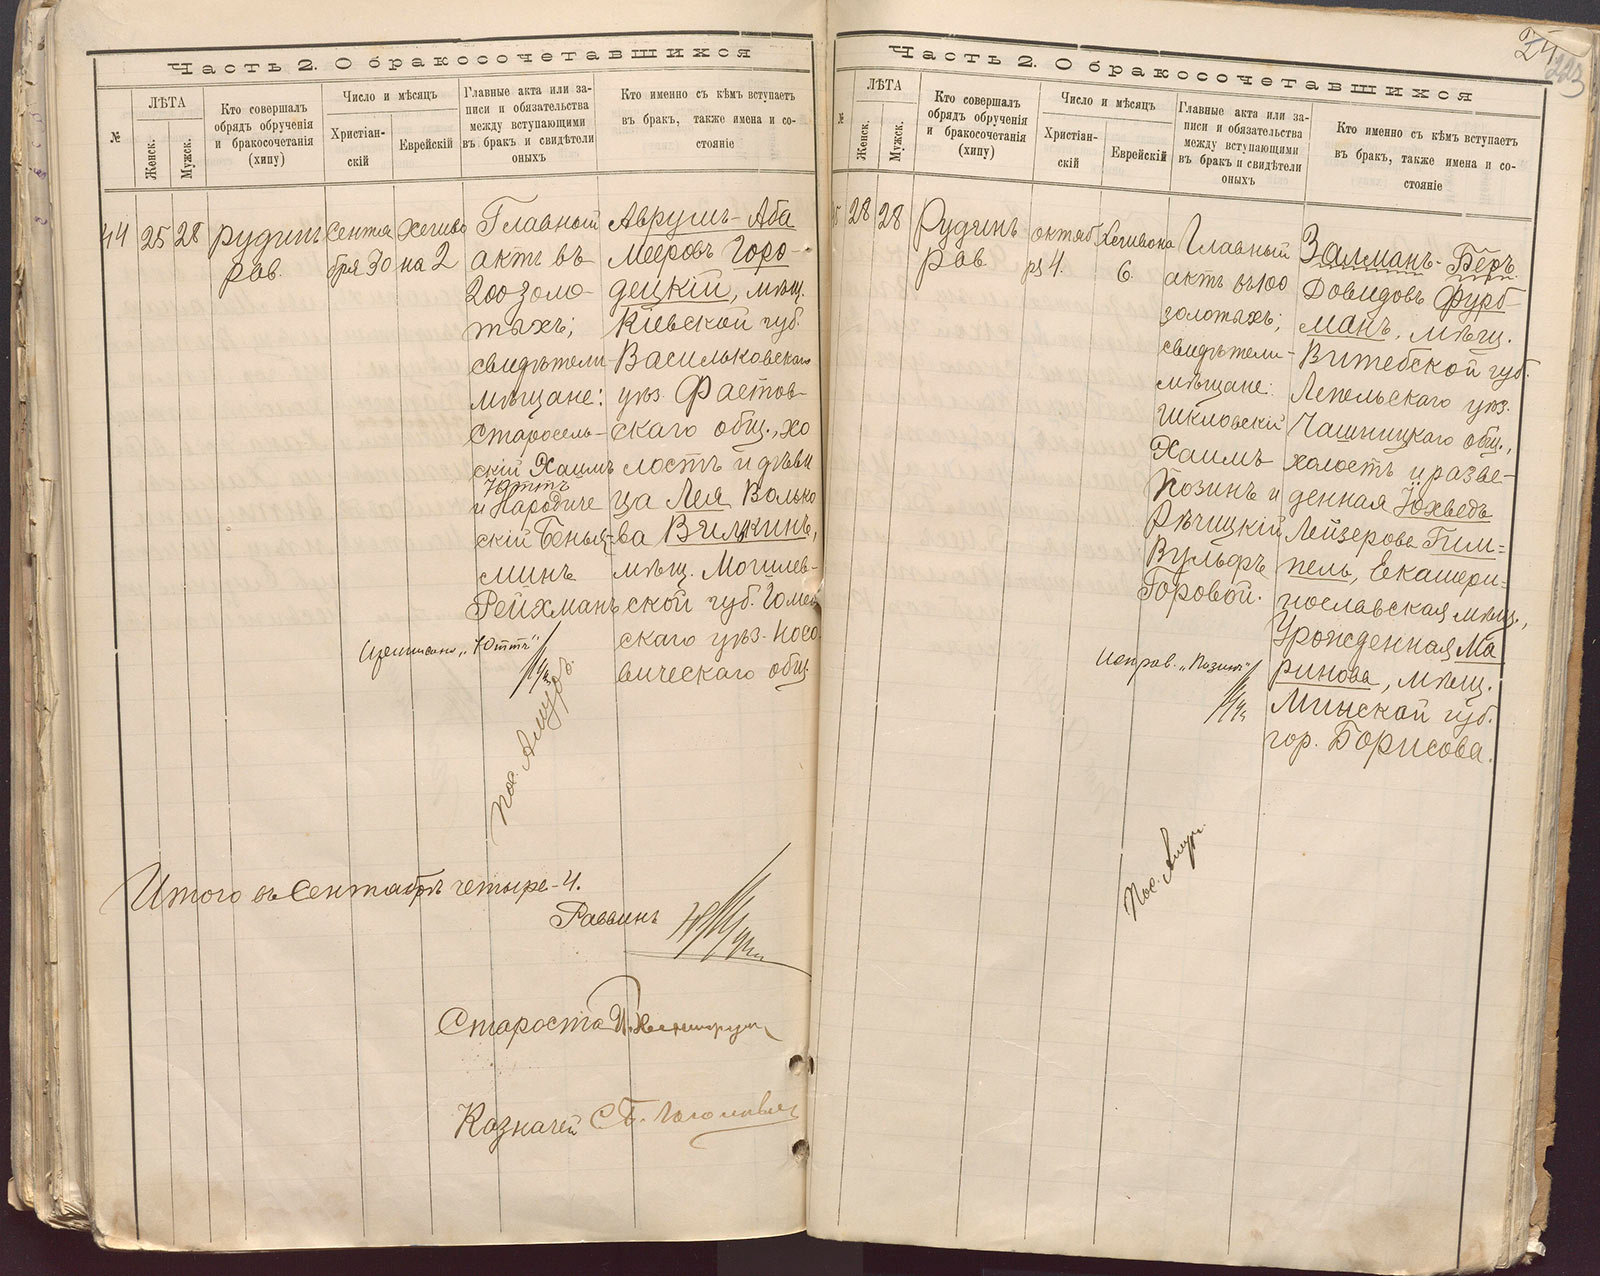 Часть 2. О бракосочетавшихся
№
ЛѢТА
Женск.
Мужск.
Кто совершалъ
обрядъ обрученія
и бракосочетанія
(хипу)
Число и мѣсяцъ
Христіан-
скій
Еврейскій
Главные акта или за-
писи и обязательства
между вступающими
въ бракъ и свидѣтели
оныхъ
Кто именно съ кѣмъ вступаетъ
въ бракъ, также имена и со-
стояніе
44
25
28
Рудинъ
рав.
Сентя
бря 30
Хешво
на 2
Главный
актъ въ
200 золо-
тахъ;
свидѣтели-
мѣщане:
Старосель-
скій Хаимъ
Юттъ
и Народиче
скій Бенья-
минъ
Рейхманъ
Аврумъ-Аба
Мееровъ Горо-
децкій, мѣщ.
Кіевской губ.
Васильковскаго
уѣз. Фастов-
скаго общ., хо
лостъ и дѣви
ца Лея Волько
ва Вилкинъ,
мѣщ. Могилев-
ской губ. Гомел
скаго уѣз. Носо
вическаго общ.
"Юттъ"
Итого въ Сентябрѣ четыре-4.
Раввинъ
Староста
Казначей
Часть 2. О бракосочетавшихся
№
ЛѢТА
Женск.
Мужск.
Кто совершалъ
обрядъ обрученія
и бракосочетанія
(хипу)
Число и мѣсяцъ
Христіан-
скій
Еврейскій
Главные акта или за-
писи и обязательства
между вступающими
въ бракъ и свидѣтели
оныхъ
Кто именно съ кѣмъ вступаетъ
въ бракъ, также имена и со-
стояніе
28
28
Рудинъ
рав
октяб
ря 4.
Хешвона
6.
Главный
актъ въ 100
золотахъ;
свидѣтели-
мѣщане:
Шкловскій
Хаимъ
Позинъ и
Рѣчицкій
Вульфъ
Горовой.
Залманъ-Беръ
Довидовъ Фурб-
манъ, мѣщ.
Витебской губ.
Лепельскаго уѣз.
Чашницкаго общ.,
холостъ и разве-
денная Юхведъ
Лейзерова Гим-
пель, Екатери-
нославская мѣщ.,
Урожденная Ма
ринова, мѣщ.
Минской губ.
гор. Борисова.
Исправ. "Позинъ"
223